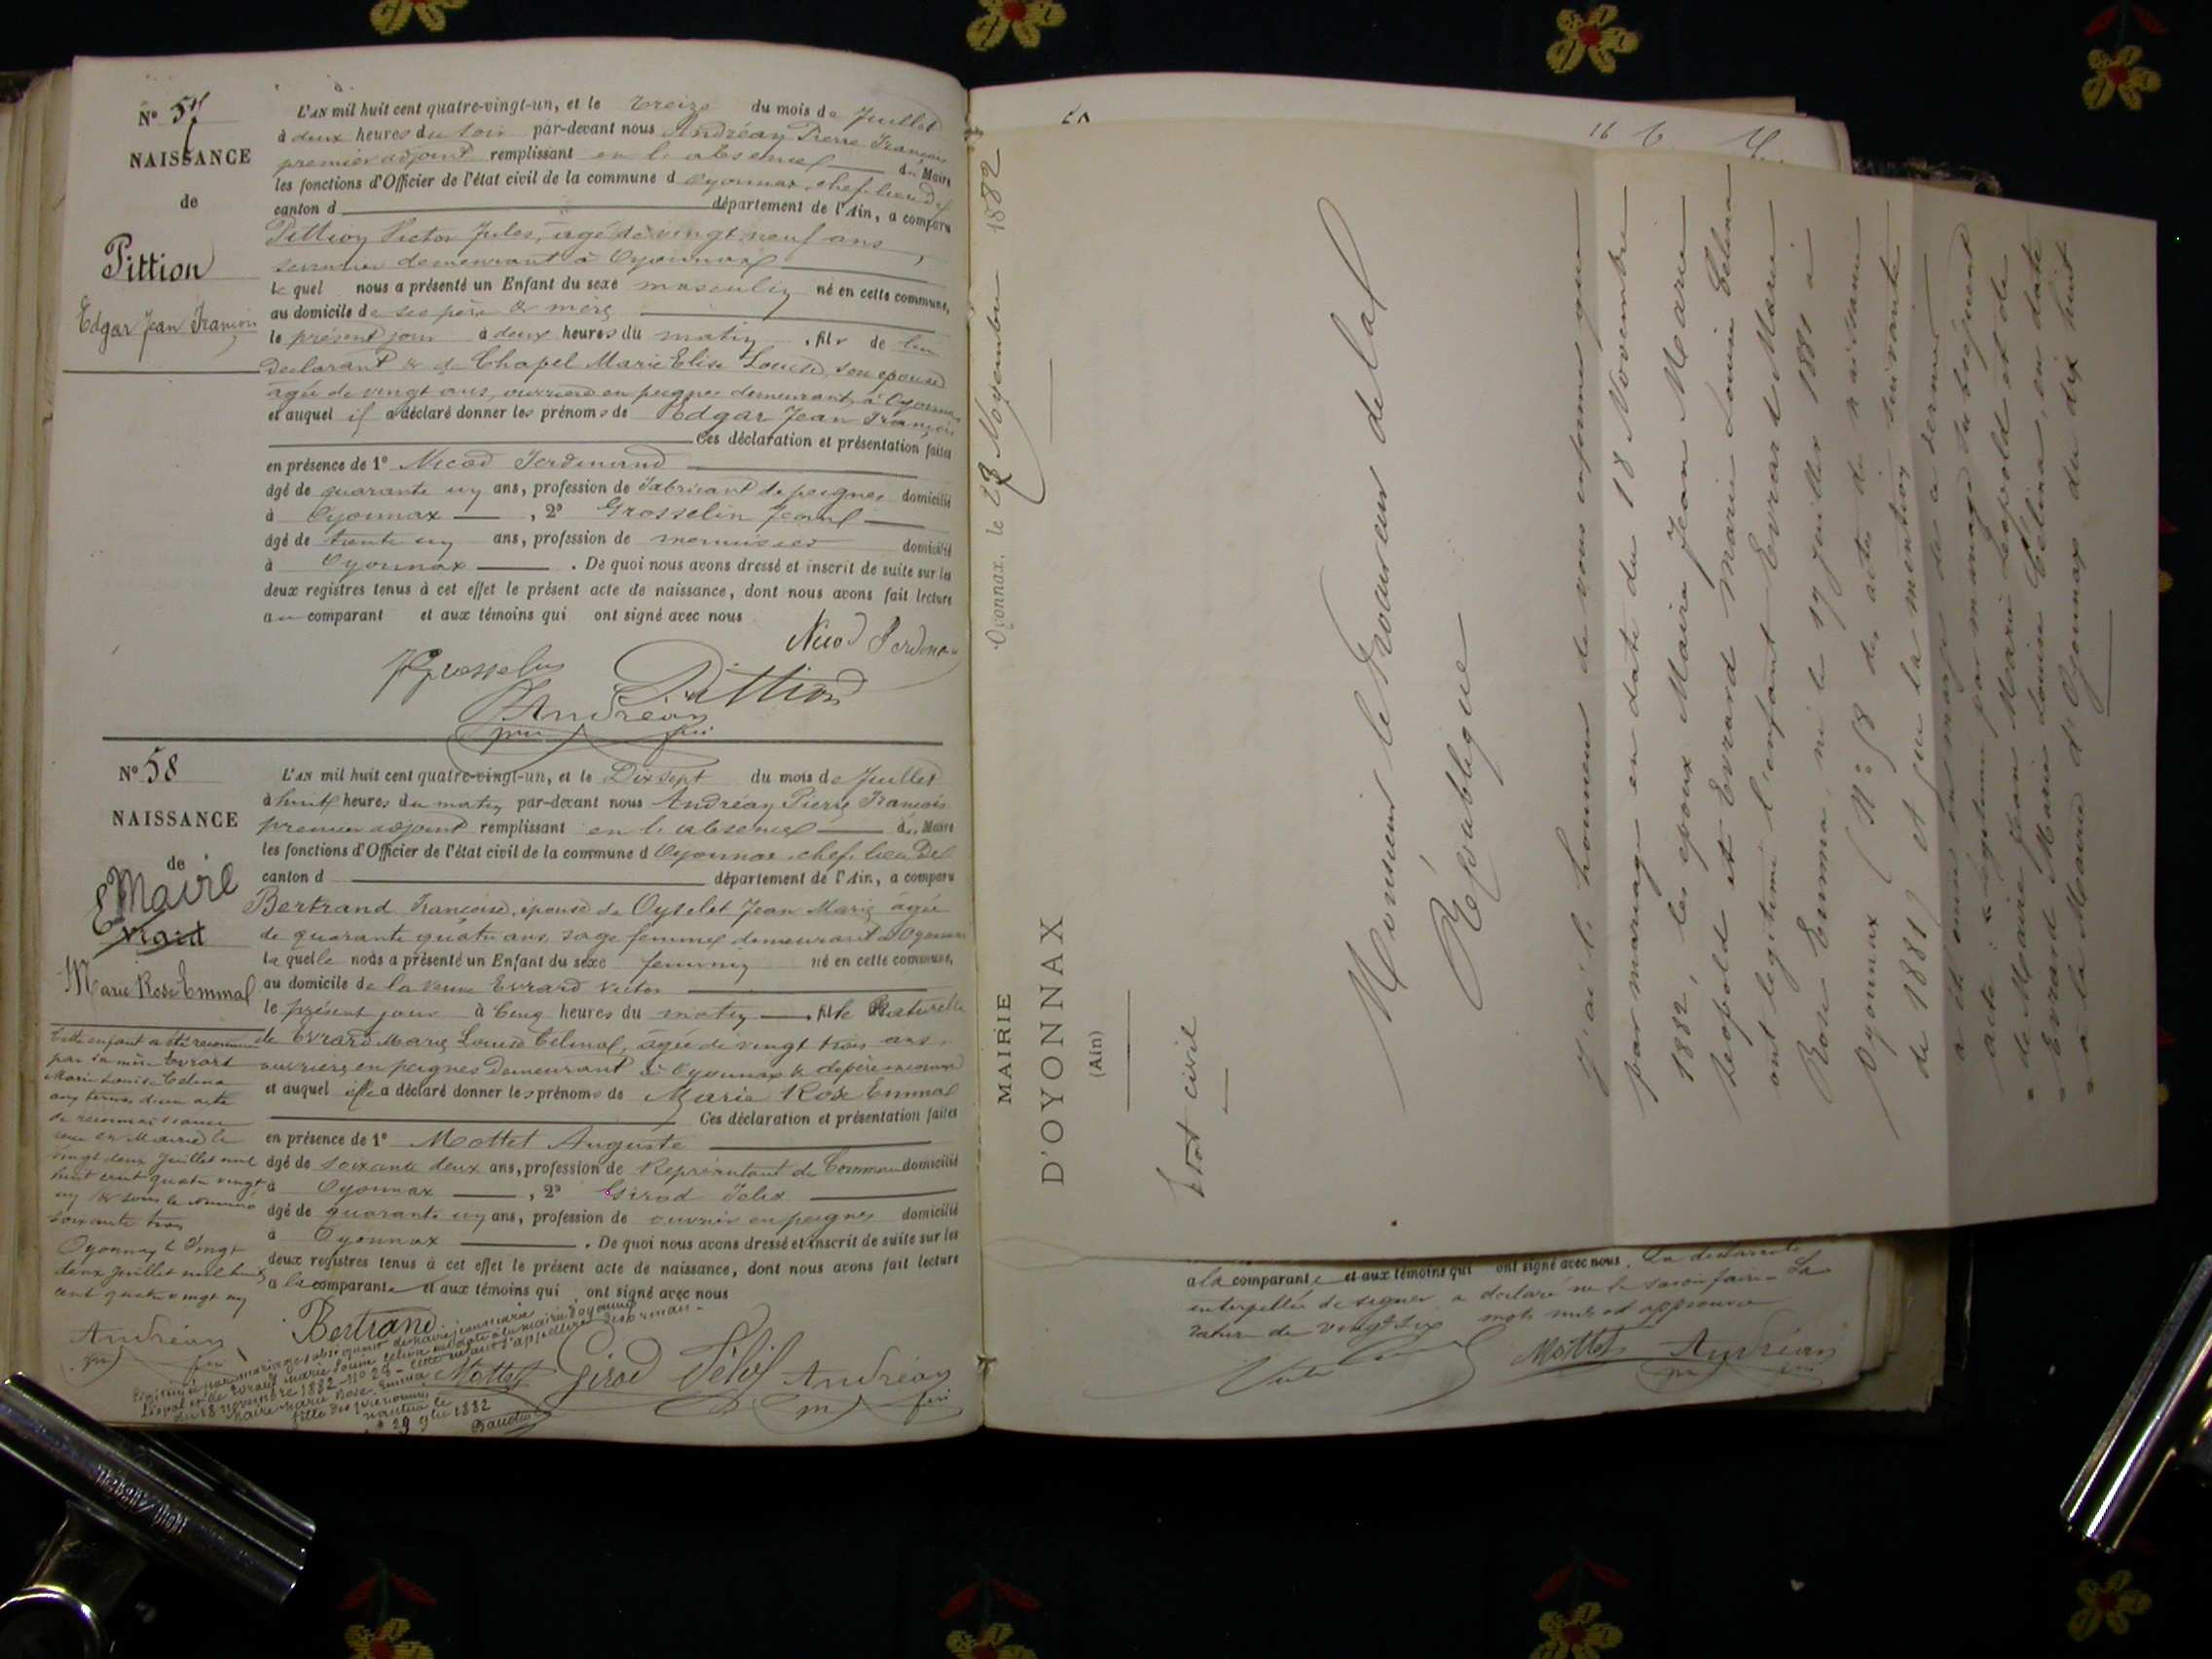 N° 57
NAISSANCE
de
Pittion
Edgar Jean François
L'AN mil huit cent quatre-vingt-un, et le treize du mois de Juillet
à deux heures du soir par-devant nous Andréay Pierre François
premier adjoint remplissant en l'absence du Maire
les fonctions d'Officier de l'état civil de la commune d'Oyonnax, chef-lieu de
canton d département de l'Ain, a comparu
Pittion Victor Jules, agé de vingt neuf ans
serrurier demeurant à Oyonnax
lequel nous a présenté un Enfant du sexe masculin né en cette commune,
au domicile de ses père & mère
le présent jour à deux heures du matin, fils de lui
déclarant & de Chapel Marie Elise Louise, son épouse
agée de vingt ans, ouvrière en peignes demeurant à Oyonnax
et auquel il a déclaré donner les prénoms de Edgar Jean François
Ces déclaration et présentation faites
en présence de 1° Nicod Ferdinand
âgé de quarante un ans, profession de fabricant de peignes domicilié
à Oyonnax, 2° Grosselin Jean
âgé de trente un ans, profession de menuisier domicilié
à Oyonnax. De quoi nous avons dressé et inscrit de suite sur les
deux registres tenus à cet effet le présent acte de naissance, dont nous avons fait lecture
au comparant et aux témoins qui ont signé avec nous
Nicod Ferdinand
Grosselin Pittion
Andréay
N° 58
NAISSANCE
de
Maire
Marie Rose Emma
L'AN mil huit cent quatre-vingt-un, et le Dix sept du mois de Juillet
à huit heures du matin par-devant nous Andréay Pierre François
premier adjoint remplissant en l'absence du Maire
les fonctions d'Officier de l'état civil de la commune d'Oyonnax, chef-lieu de
canton d département de l'Ain, a comparu
Bertrand Françoise, épouse de Oyselet Jean Marie agée
de quarante quatre ans, sage femme demeurant à Oyonnax
laquelle nous a présenté un Enfant du sexe féminin né en cette commune,
au domicile de la veuve Evrard Victor
le présent jour à cinq heures du matin, fille Naturelle
de Evrard Marie Louise Célina, agée de vingt trois ans,
ouvrière en peignes demeurant à Oyonnax & de père inconnu
et auquel elle a déclaré donner les prénoms de Marie Rose Emma
Ces déclaration et présentation faites
en présence de 1° Mottet Auguste
âgé de soixante deux ans, profession de Représentant de Commerce domicilié
à Oyonnax, 2° Girod Félix
âgé de quarante un ans, profession de ouvrier en peignes domicilié
à Oyonnax. De quoi nous avons dressé et inscrit de suite sur les
deux registres tenus à cet effet le présent acte de naissance, dont nous avons fait lecture
à la comparante et aux témoins qui ont signé avec nous
Cette enfant a été reconnue
par sa mère Evrard
Marie Louise Célina
aux termes d'un acte
de reconnaissance
reçu en Mairie le
vingt deux Juillet mil
huit cent quatre vingt
un & sous le Numéro
soixante trois
Oyonnax le vingt
deux Juillet mil huit
cent quatre vingt un
Andréay
Bertrand
Mottet Girod Félix Andréay
Légitimée par mariage subséquent de Maire jean marie
Léopold et de Evrard Marie Louise Célina en date à la mairie d'Oyonnax
du 18 novembre 1882 - N° 29 - cette enfant s'appellera désormais -
Maire Marie Rose Emma
fille des prénommés
Nantua le
29 9bre 1882
MAIRIE
D'OYONNAX
(Ain)
Etat civil
Oyonnax, le 23 Novembre 1882
Monsieur le Procureur de la
République
J'ai l'honneur de vous informer que
par mariage en date du 18 Novembre
1882, les époux Maire Jean Marie
Léopold et Evrard Marie Louise Célina
ont légitimé l'enfant Evrard Marie
Rose Emma, né le 17 Juillet 1881 à
Oyonnax (N° 58 des actes de naissance
de 1881) et que la mention suivante
a été mise en marge de ce dernier
acte : « Légitimée par mariage subséquent
» de Maire Jean Marie Léopold et de
» Evrard Marie Louise Célina, en date
» à la Mairie d'Oyonnax du dix huit
à la comparante et aux témoins qui ont signé avec nous. La déclarante
interpellée de signer a déclaré ne le savoir faire. La
rature de vingt six mots nuls est approuvée
Mottet Andréay